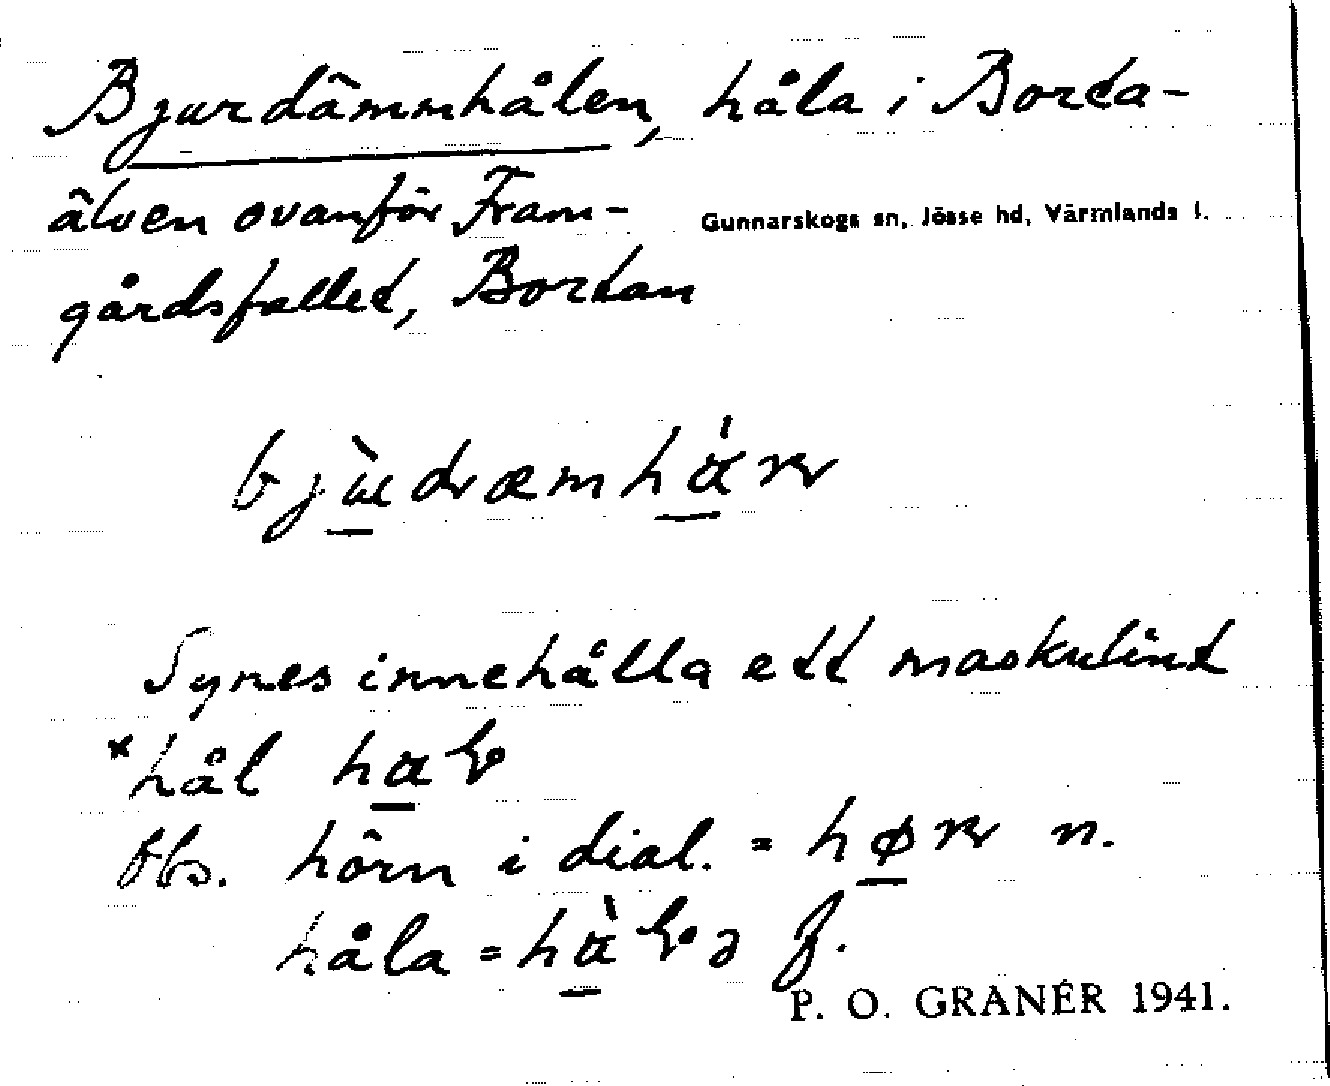 Bjurdämmhålen, håla i Borta-
älven ovanför Fram-
Gunnarskogs sn, Jösse hd, Värmlands l.
gårdsfallet, Bortan
Synes innehålla ett maskulint
*hål
Obs. hörn i dial. = n.
håla = f.
P. O. GRANÉR 1941.